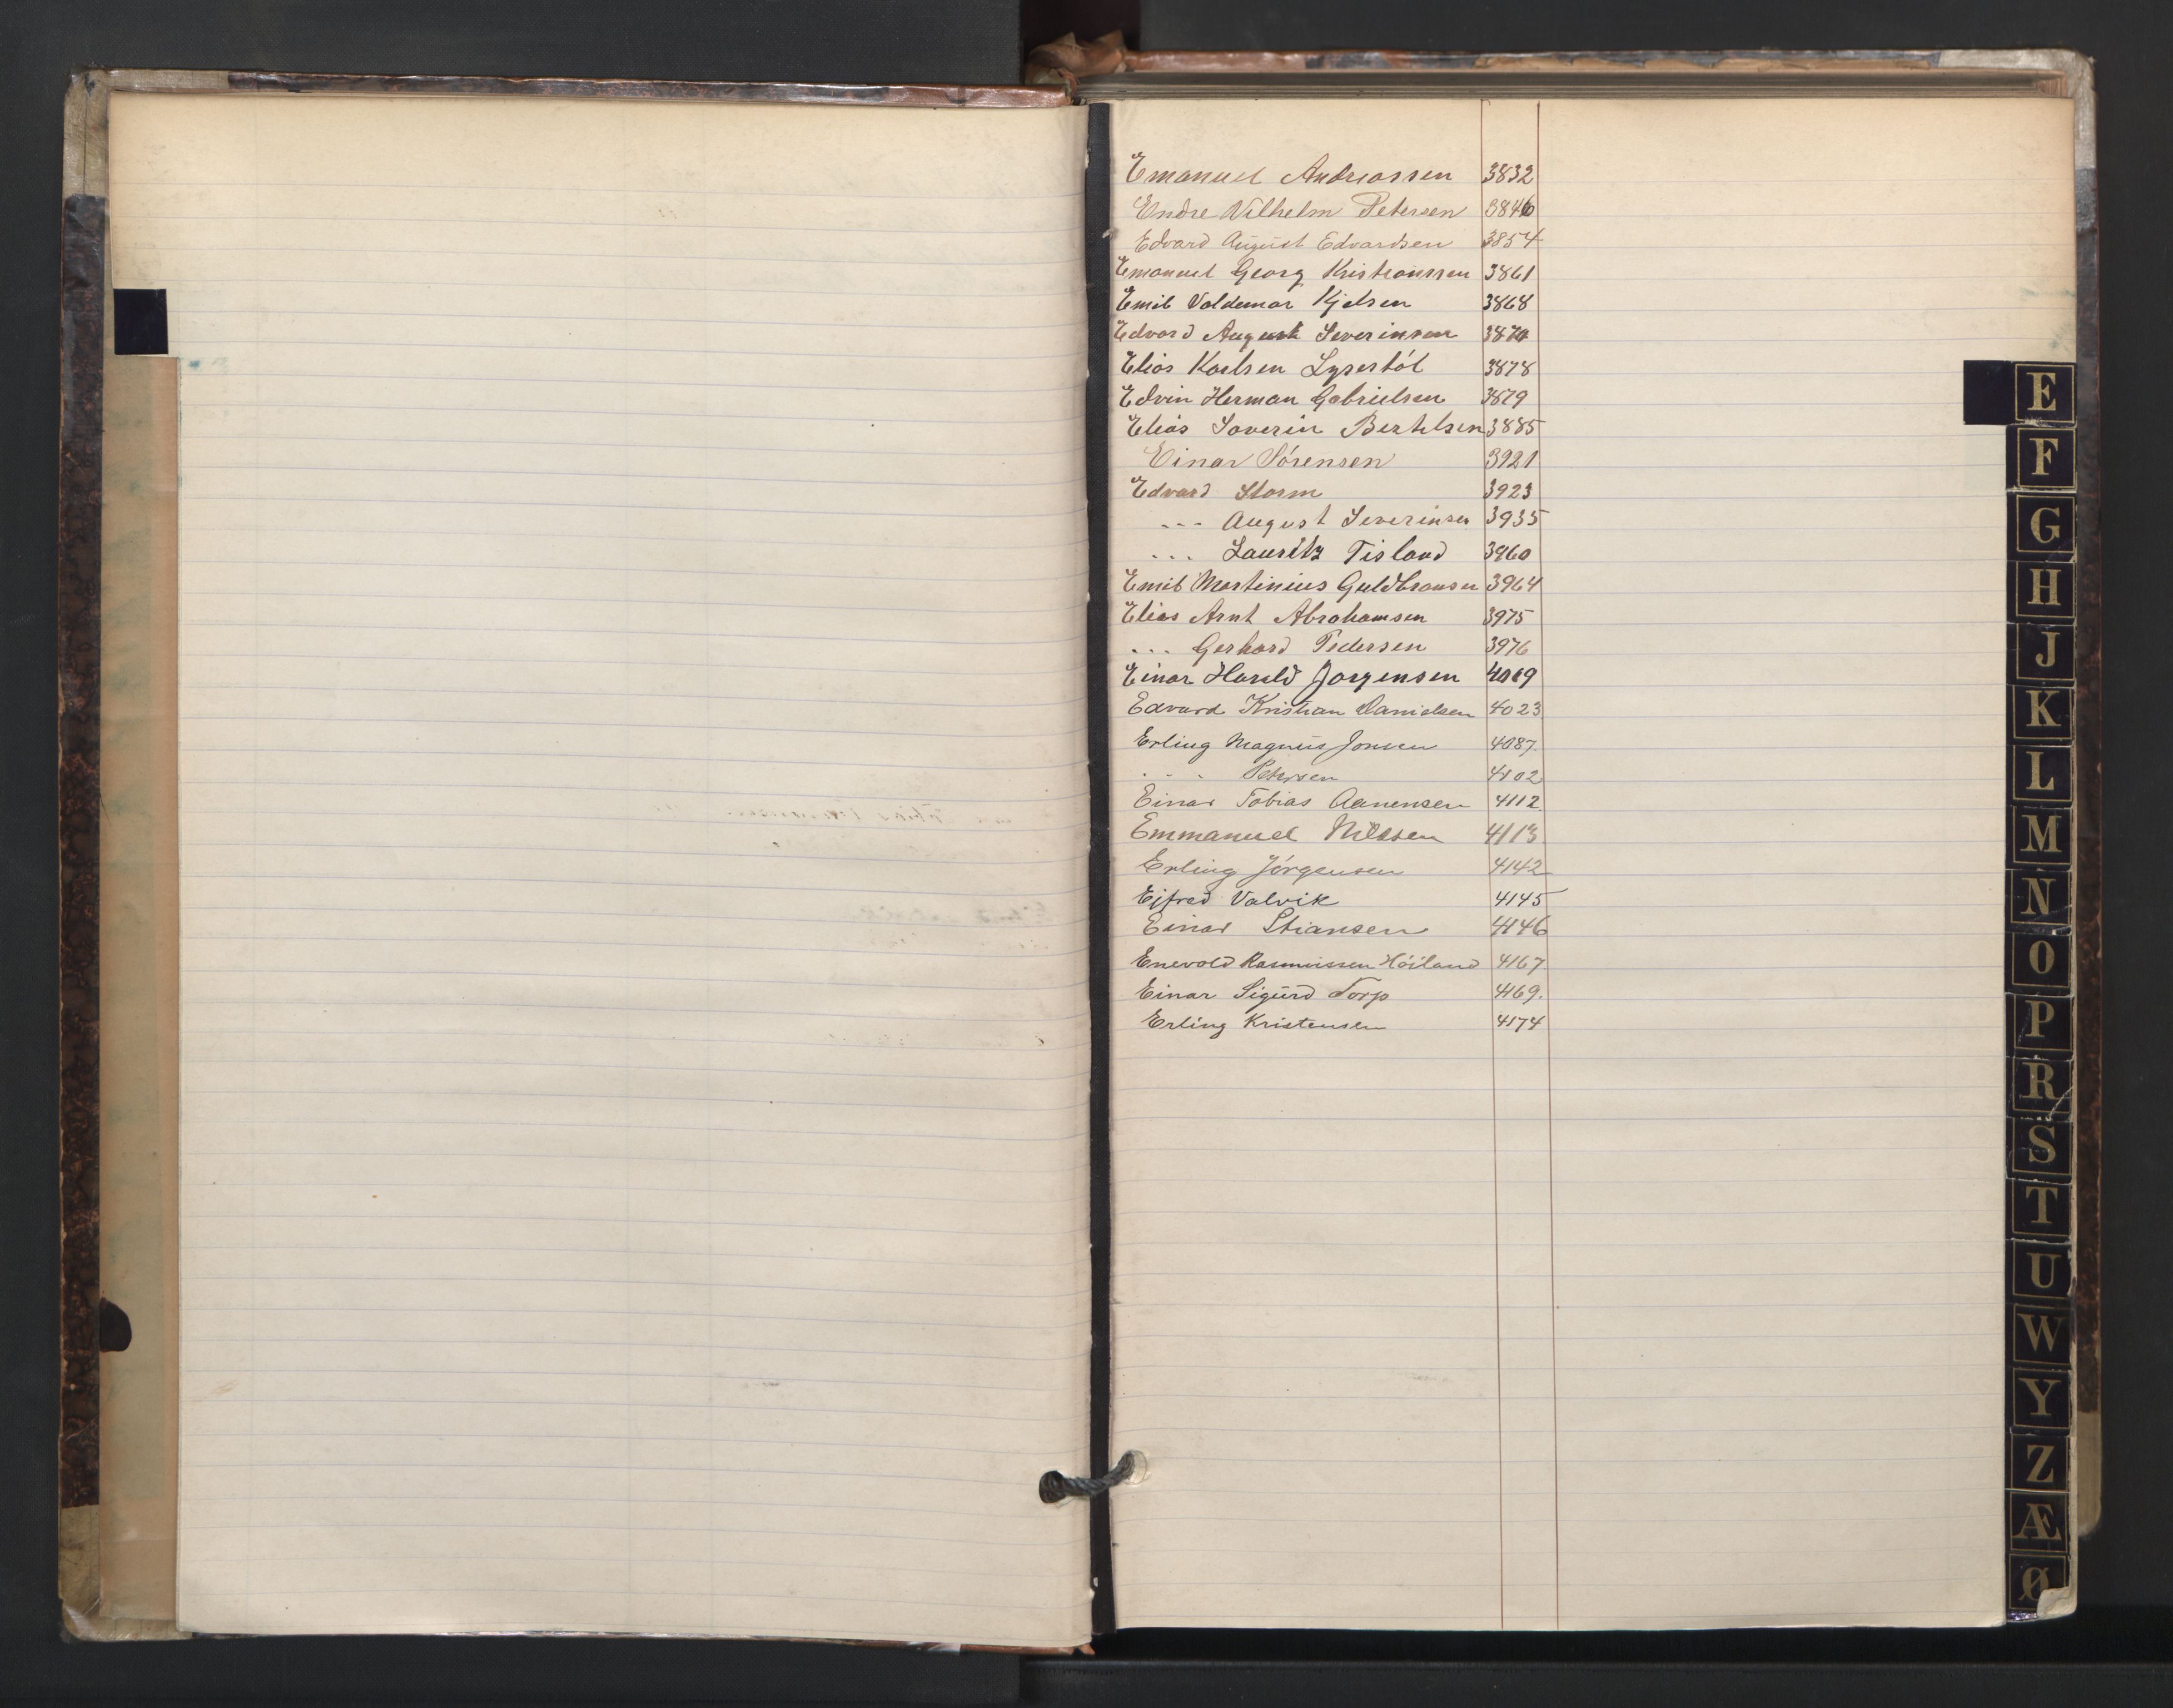 Emanuel Andreassen 3832
Endre Vilhelm Petersen 3846
Edvard August Edvardsen 3854
Emanuel Georg Kristianssen 3861
Emil Valdemar Kjelsen 3868
Edvard August Severinsen 3870
Elias Karlsen Lyserstøl 3878
Edvin Herman Gabrielsen 3879
Elias Saverin Bertelsen 3885
Einar Sörensen 3921
Edvard Storm 3923
--- August Severinsen 3935
... Lauritz Tisland 3960
Emil Martinius Guldbransen 3964
Elias Arnt Abrahamsen 3975
... Gerhard Pedersen 3976
Einar Harald Jorgensen 4019
Edvard Kristian Danielsen 4023
Erling Magnus Jonsen 4087.
. - - Petersen 4102
Einar Tobias Aanensen 4112.
Emmanuel Nilssen 4113.
Erling Jörgensen 4142
Ejfred Valvik 4145
Einar Stiansen 4146
Enevold Rasmussen Höiland 4167.
Einar Sigurd Torp 4169.
Erling Kristensen 4174
E
F
G
H
J
K
L
M
N
O
P
R
S
T
U
W
Y
Z
Æ
Ø